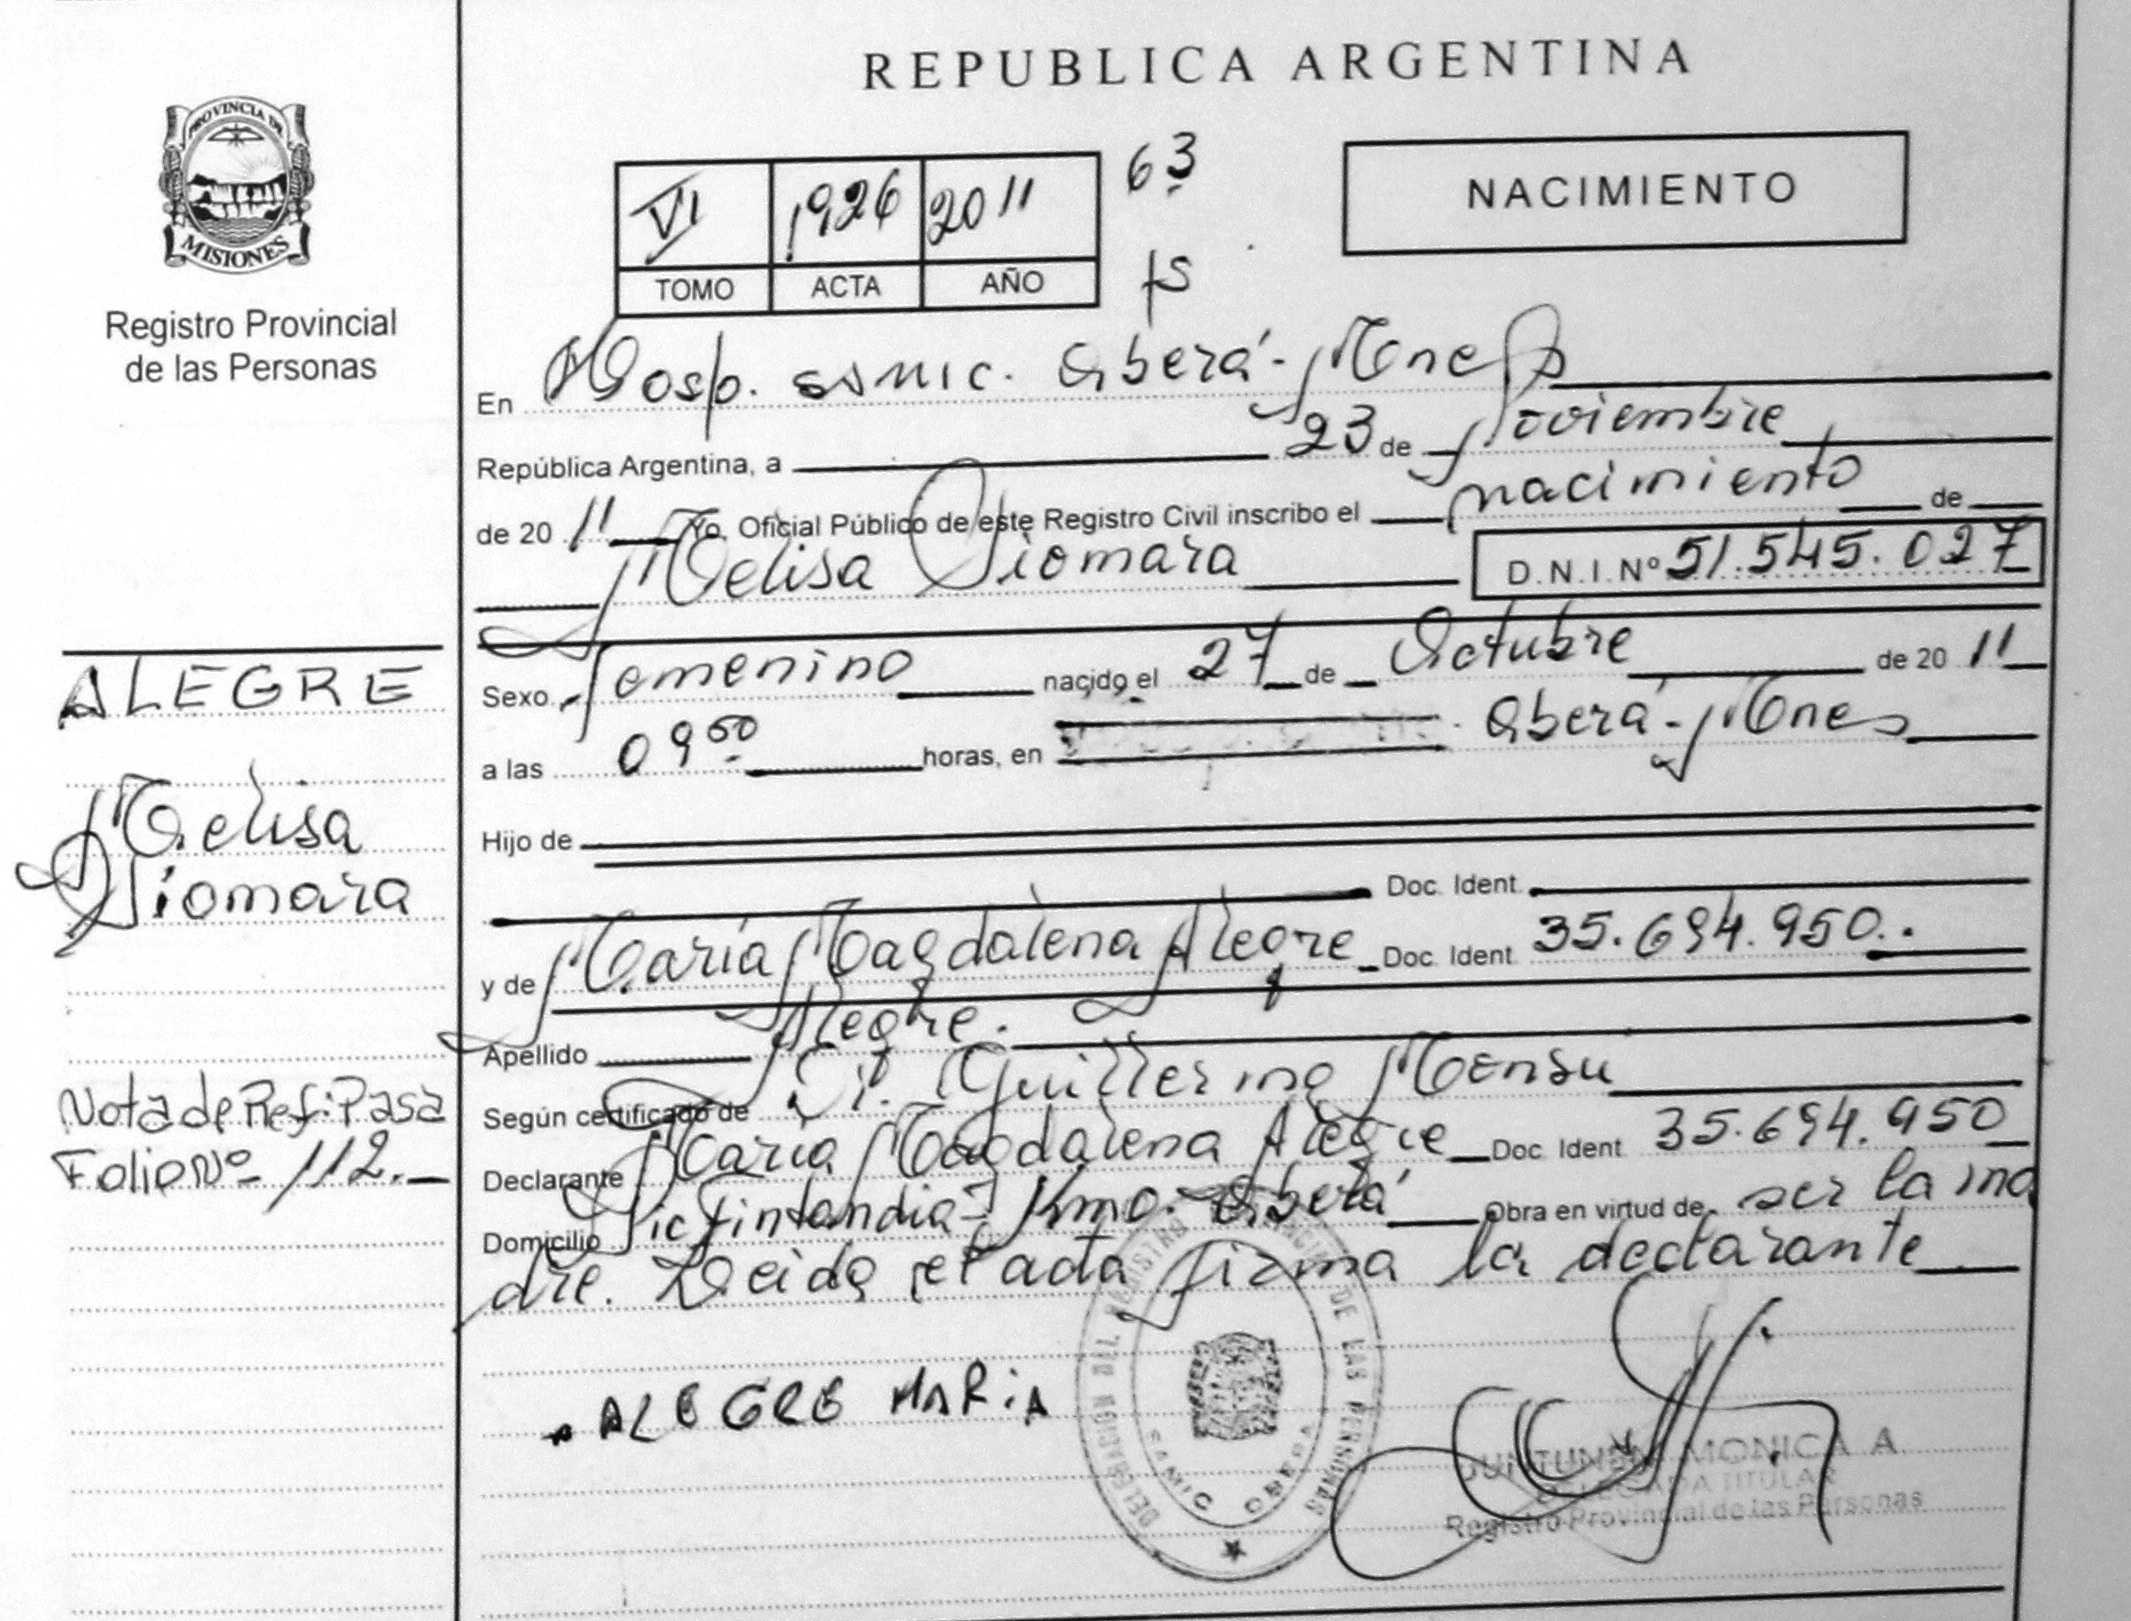 REPUBLICA ARGENTINA
PROVINCIA DE
MISIONES
Registro Provincial
de las Personas
VI 1926 2011
TOMO ACTA AÑO
63
fs
NACIMIENTO
En Hosp. SAMIC. Oberá - Mnes
República Argentina, a 23 de Noviembre
de 20 11 Yo, Oficial Público de este Registro Civil inscribo el nacimiento de
Melisa Xiomara D.N.I. Nº 51.545.027
Sexo Femenino nacido el 27 de Octubre de 20 11
a las 09 50 horas, en Oberá - Mnes
Hijo de
Doc. Ident.
y de María Magdalena Alegre Doc. Ident. 35.694.950..
Apellido Alegre.
Según certificado de Dr. Guillermo
Declarante María Magdalena Alegre Doc. Ident. 35.694.950
Domicilio Pic Finlandia - Kmo. Oberá Obra en virtud de ser la ma
dre. Leida el acta firma la declarante
ALEGRE MARiA
ALEGRE
Melisa
Xiomara
Nota de Ref: Pasa
Folio Nº 112.
DELEGACION DEL REGISTRO PROVINCIAL DE LAS PERSONAS
SAMIC OBERA
MONICA A
DELEGADA TITULAR
Registro Provincial de las Personas